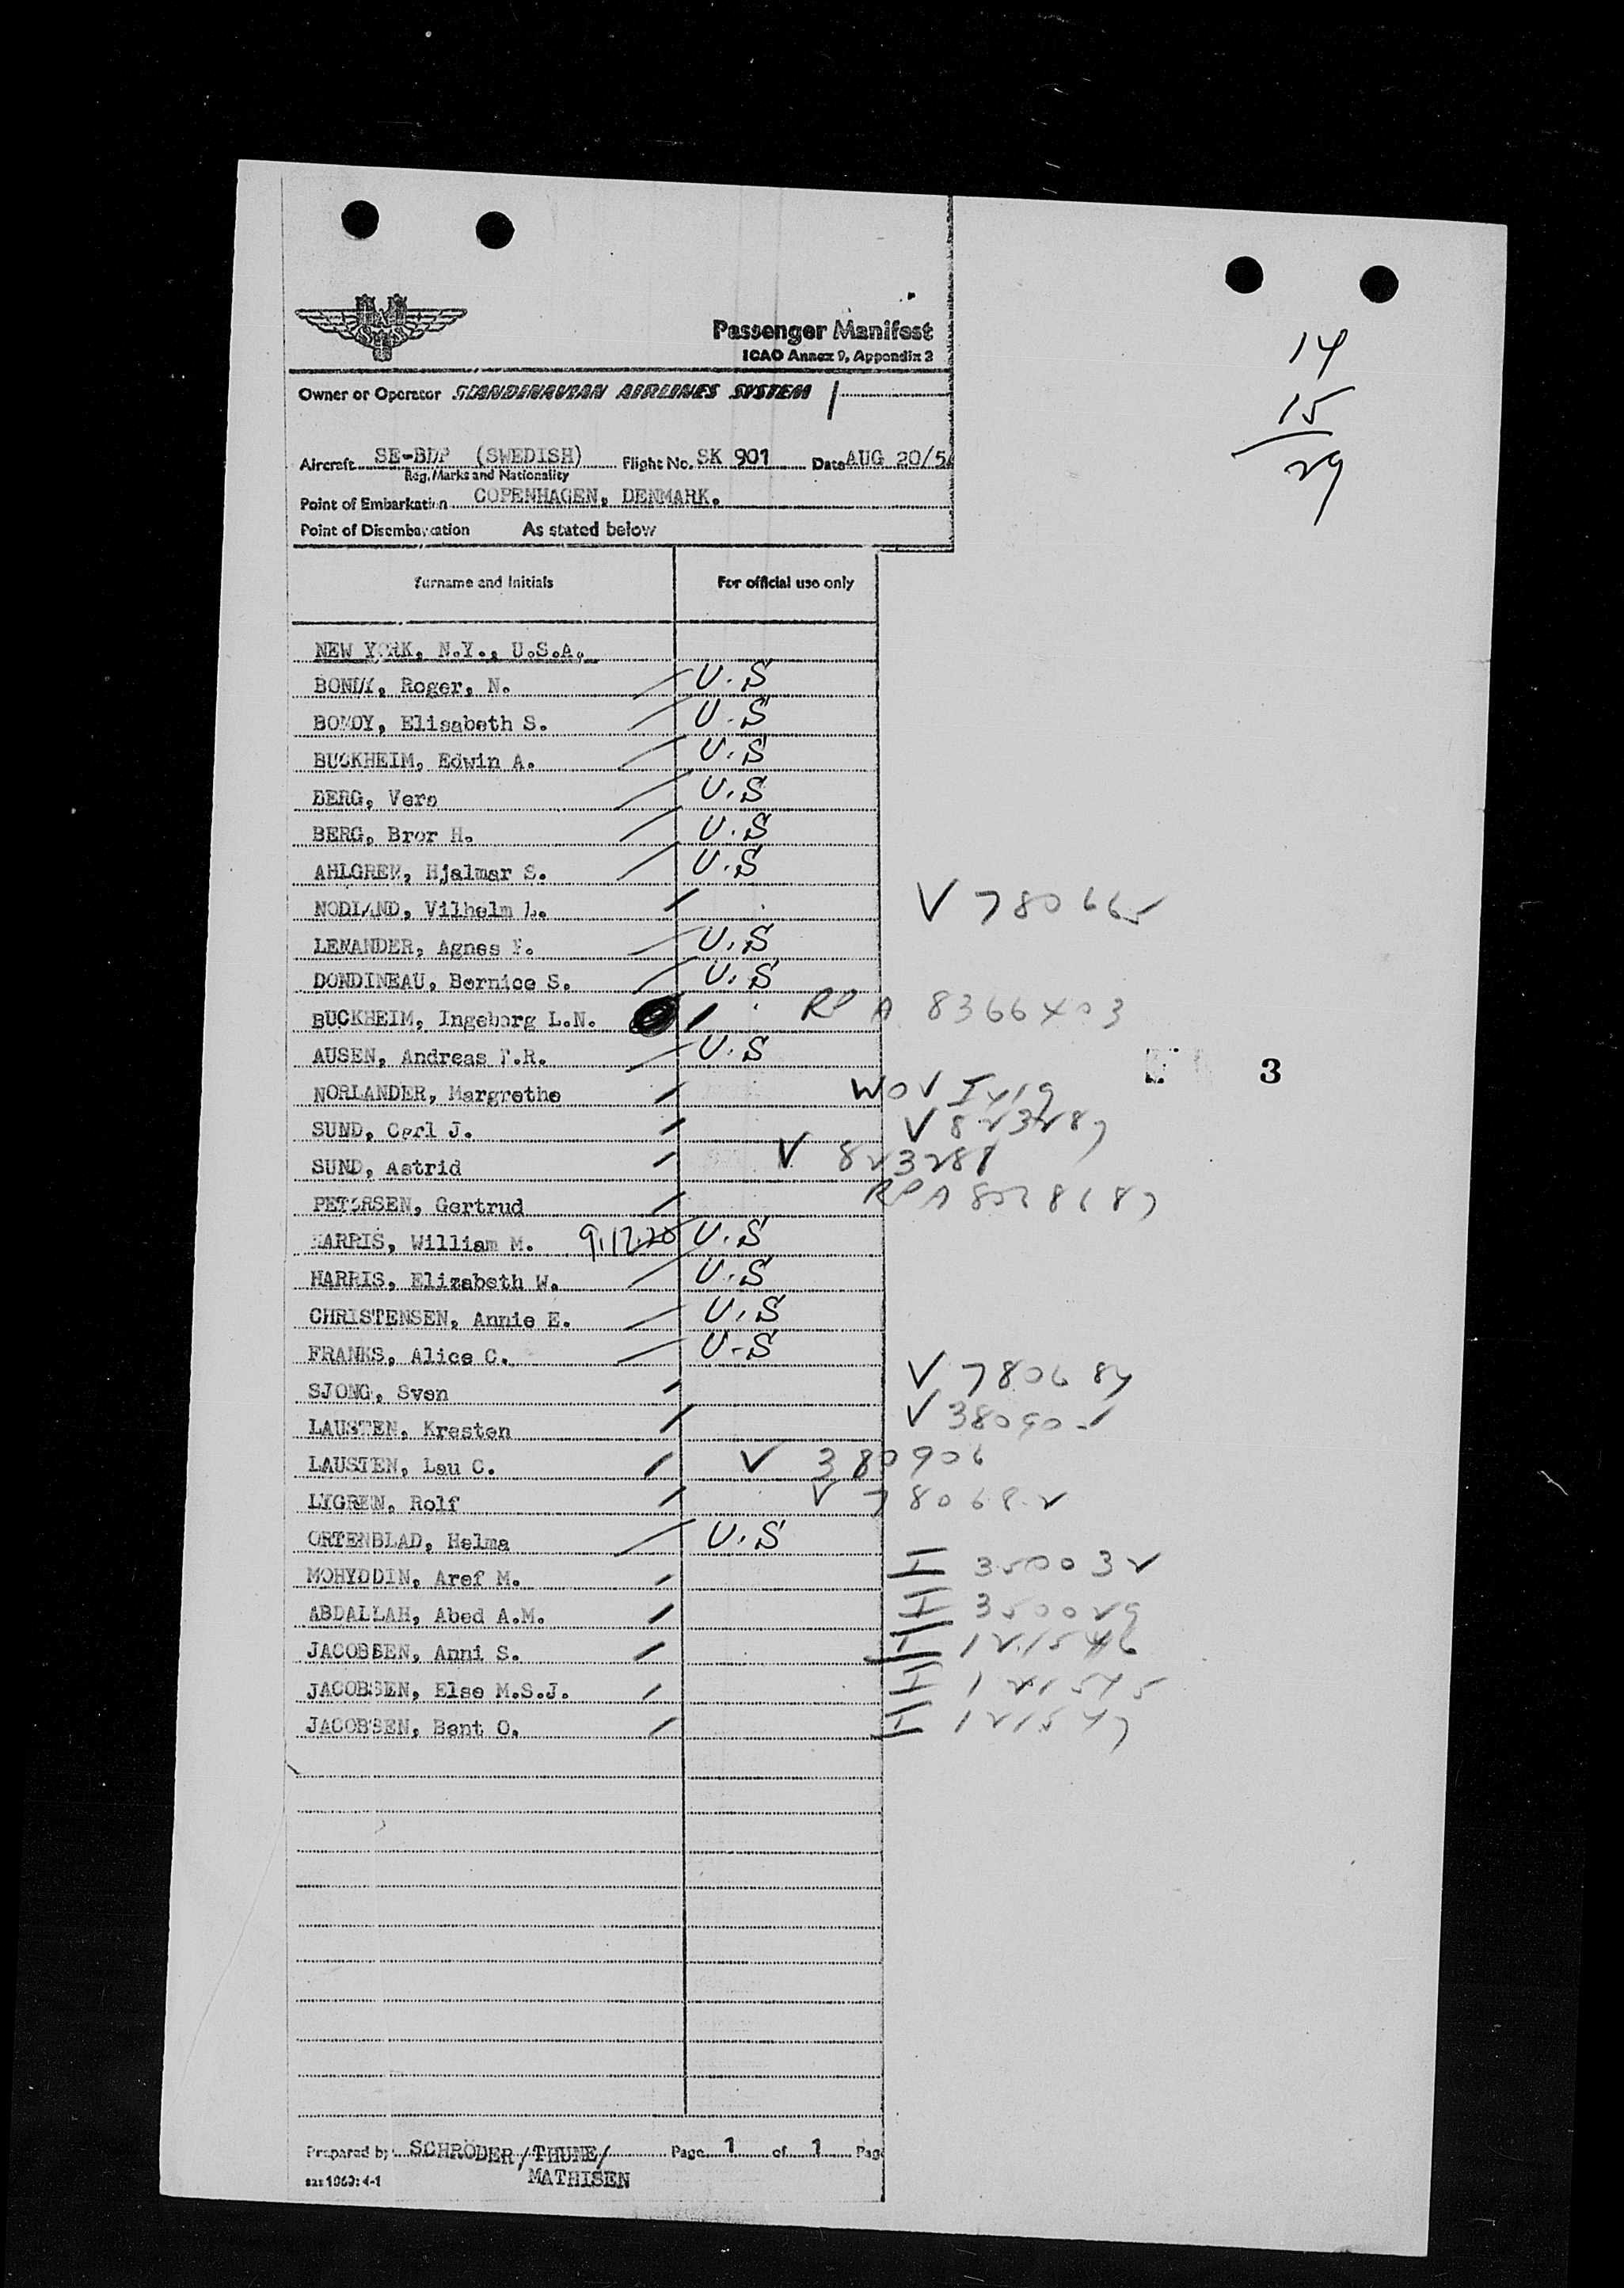 Passenger Manifest
ICAO Annex 9, Appendix 2
Owner or Operator SCANDINAVIAN AIRLINES SYSTEM
14
15
29
Aircraft SE-BDP (SWEDISH) Flight No. SK 901 Date AUG 20/5
Reg. Marks and Nationality
Point of Embarkation COPENHAGEN, DENMARK.
Point of Disembarcation As stated below
Surname and Initials For official use only
NEW YORK, N.Y., U.S.A.
BONDY, Roger, N. U.S
BONDY, Elisabeth S. U.S
BUCKHEIM, Edwin A. U.S
BERG, Vera U.S
BERG, Bror H. U.S
AHLGREN, Hjalmar S. U.S
NODLAND, Vilhelm L. V 780665
LENANDER, Agnes U.S
DONDINEAU, Bernice S. U.S
BUCKHEIM, Ingeborg L.N. RP A 8366403
AUSEN, Andreas F.R. U.S
3
NORLANDER, Margrethe WOV
SUND, Carl J. V 823287
SUND, Astrid V 823288
PETERSEN, Gertrud RP A
HARRIS, William M. U.S
HARRIS, Elizabeth W. U.S
CHRISTENSEN, Annie E. U.S
FRANKS, Alice C. U.S
SJONG, Sven V 780684
LAUSTEN, Kresten V 380905
LAUSTEN, Lau C. V 380906
LYGREN, Rolf V 780682
ORTENBLAD, Helma U.S
MOHYDDIN, Aref M. I 350032
ABDALLAH, Abed A.M. I 350029
JACOBSEN, Anni S. I 121546
JACOBSEN, Else M.S.J. I 121545
JACOBSEN, Bent O. I 121547
Prepared by SCHRÖDER/THUNE/ Page 1 of 1 Pag
MATHISEN
sas 1060: 4-1